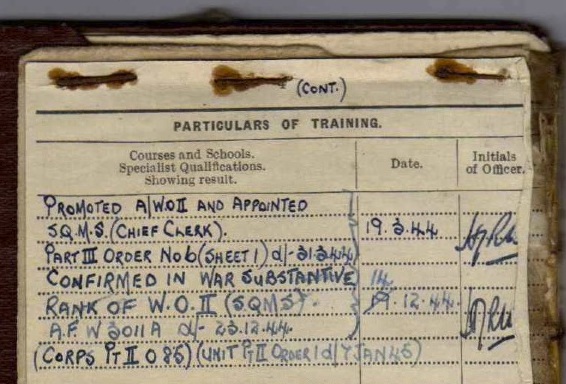 (CONT.)
PARTICULARS OF TRAINING.
Courses and Schools.
Specialist Qualifications.
Showing result.
Date.
Initials
of Officer.
PROMOTED A/W.O II AND APPOINTED
S.Q.M.S. (CHIEF CLERK). 19.3.44
PART III ORDER No 6 (SHEET 1) d/-31.3.44
CONFIRMED IN WAR SUBSTANTIVE 14
RANK OF W.O. II (SQMS). 19.12.44.
A.F.W 3011A d/- 23.12.44.
(CORPS PT II O 85) (UNIT PT II ORDER 1 d/ 7 JAN 45)